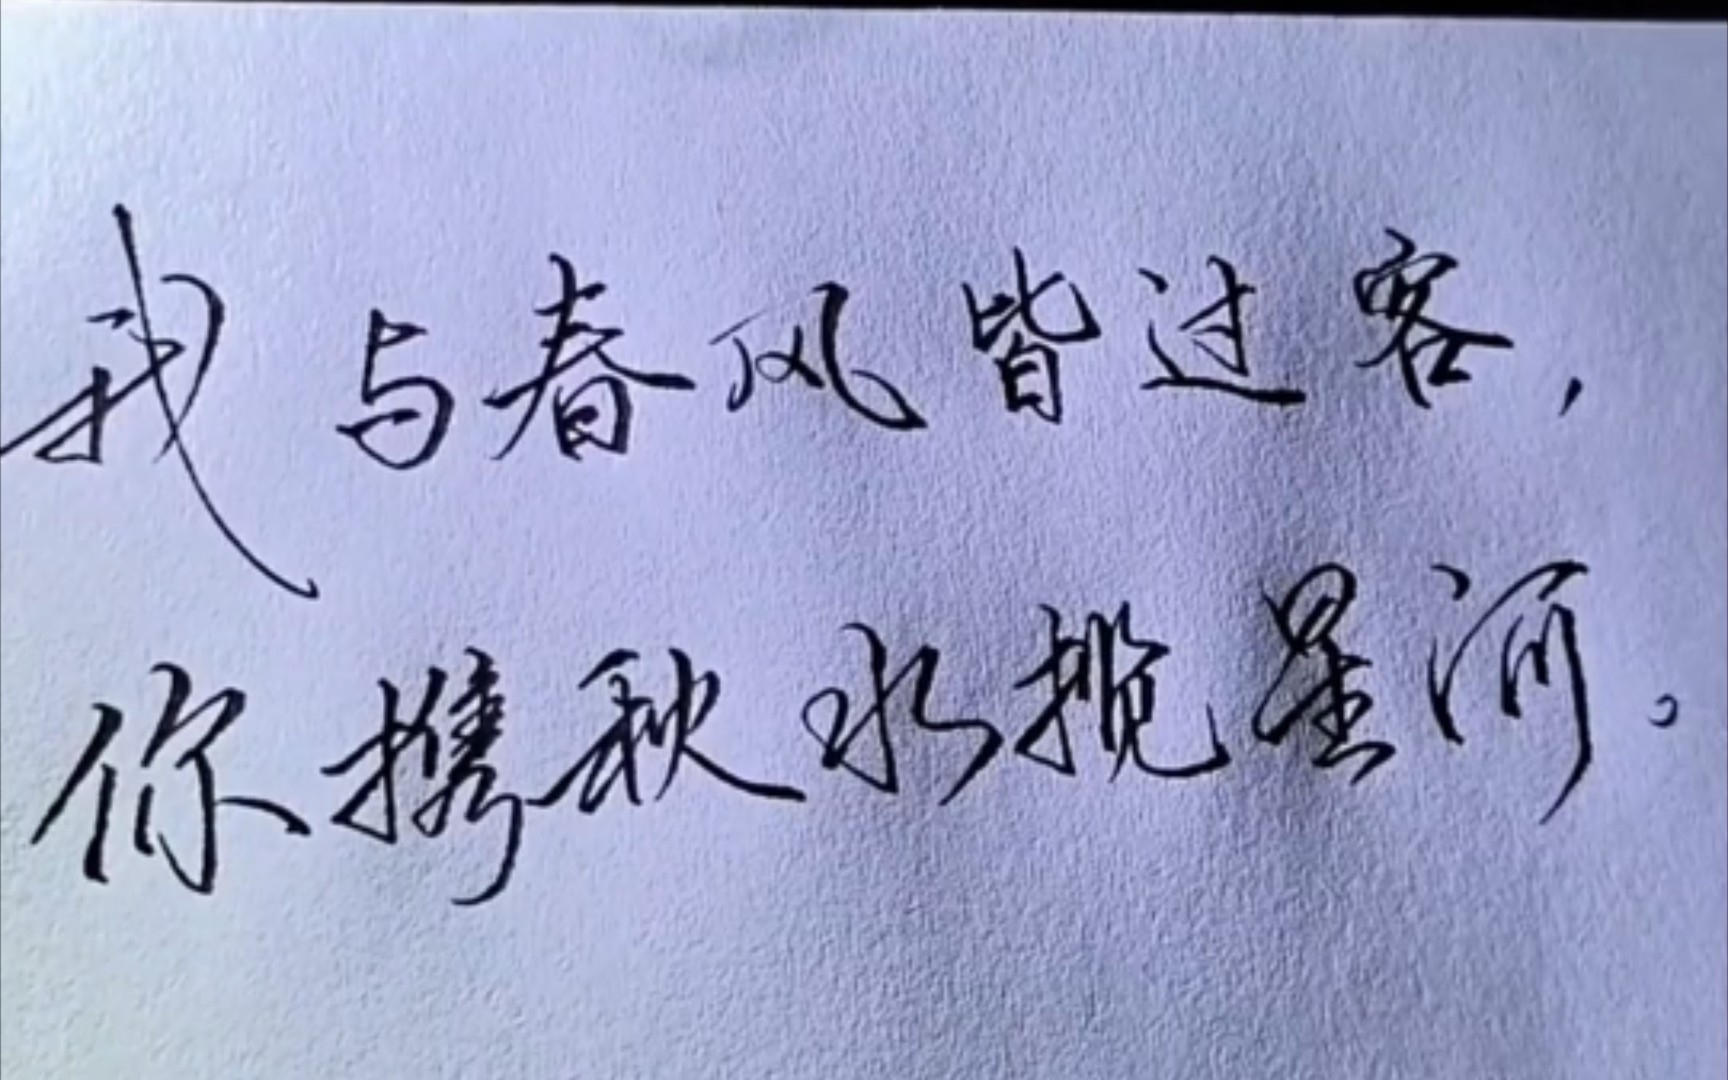 我与春风皆过客，
你携秋水揽星河。